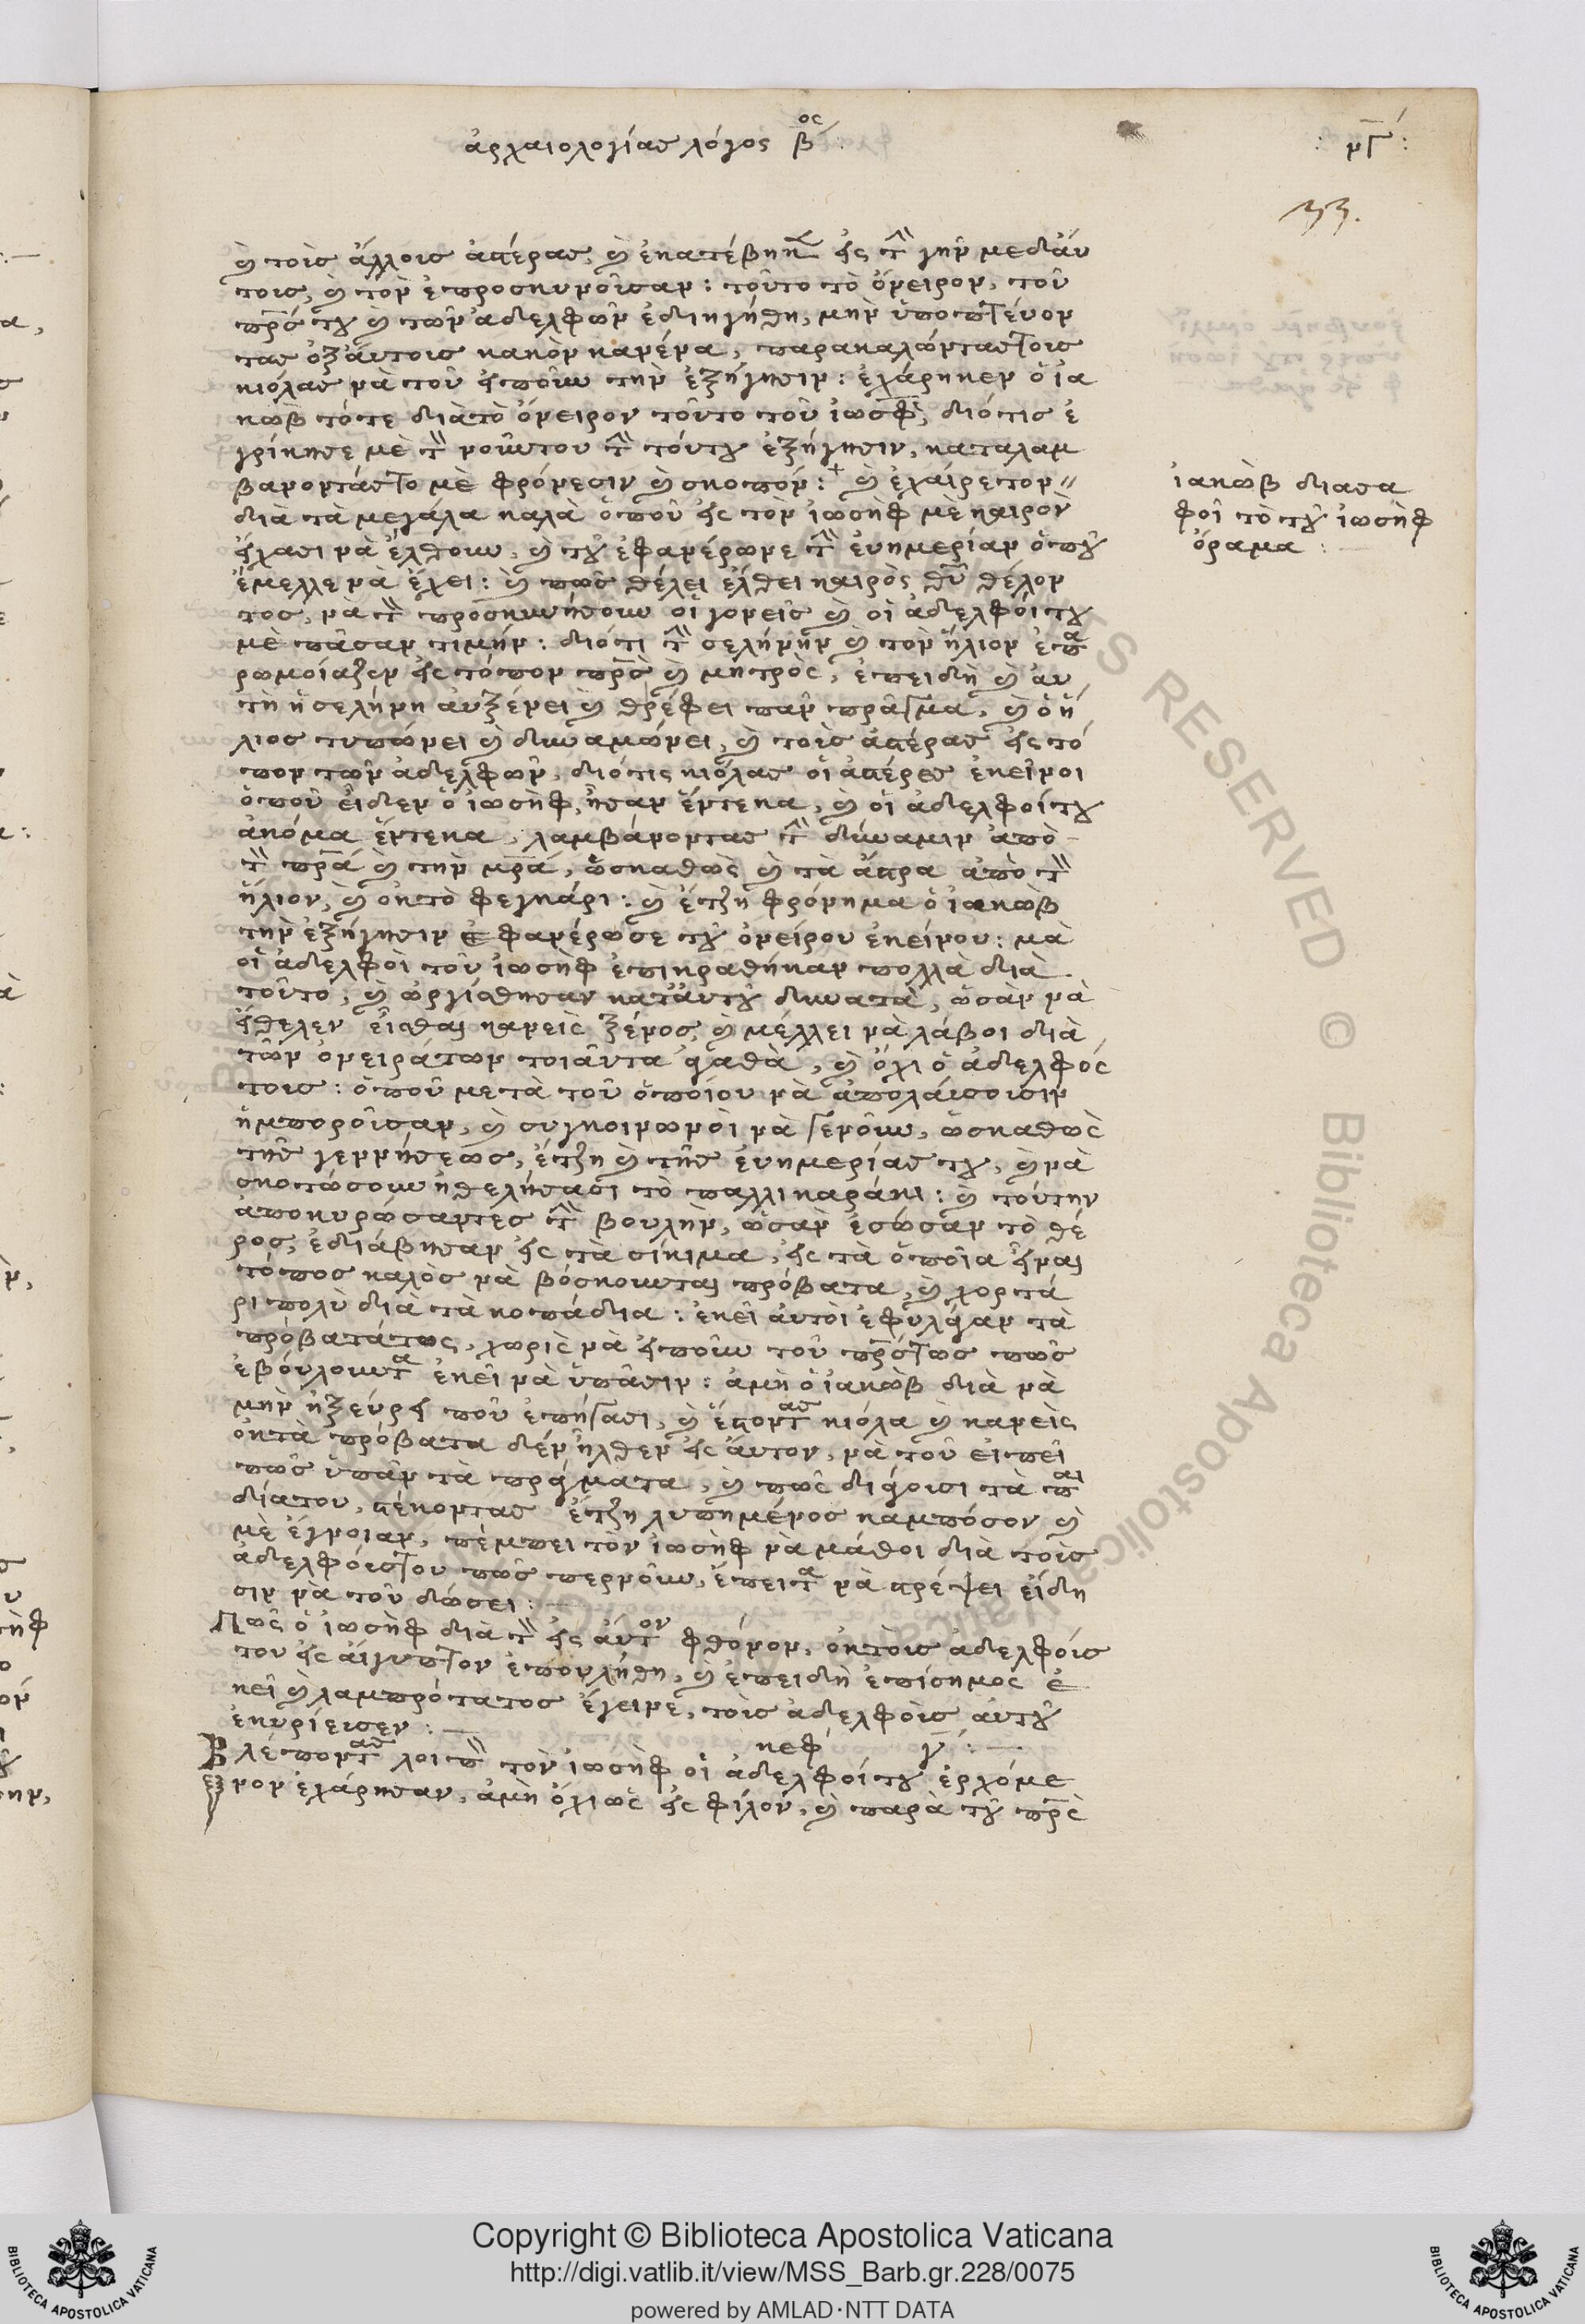 ἀρχαιολογίας λόγος βος
νγ
33.
καὶ τοὶς ἄλλοις ἀστέρας, καὶ ἐκατέβηκαν εἰς τὴν γῆν μεδάυ
τοις, καὶ τὸν ἐπροσκυνοῦσαν : τοῦτο τὸ ὄνειρον, τοῦ
πρς του καὶ τῶν ἀδελφῶν ἐδιηγήθη, μὴν ὑποπτεύον
τας ὀξάυτοις κακὸν κανένα, παρακαλώντας τοις
κιόλας νὰ τοῦ εἰποῦν τὴν ἐξήγησιν : ἐχάρηκεν ὁ ἰα
κὼβ τότε διὰ τὸ ὄνειρον τοῦτο τοῦ ἰωσὴφ, διότις ἐ
γρίκησε μὲ τὸν νοῦν του τὴν τούτου ἐξήγησιν, καταλαμ
βανοντάς το μὲ φρόνεσιν καὶ σκοπόν : καὶ ἐχαίρετον
διὰ τὰ μεγάλα καλὰ ὁποῦ εἰς τὸν ἰωσὴφ μὲ καιρὸν
εἴχασι νὰ ἔλθουν, καὶ τοῦ ἐφανέρωνε τὴν ἐυημερίαν ὁποῦ
ἔμελλε νὰ ἔχει : καὶ πῶς θέλει ἔλθει καιρὸς θῦ θέλον
τος, νὰ τὸν προσκυνήσουν οἱ γονεῖς καὶ οἱ ἀδελφόι του
μὲ πᾶσαν τιμήν : διότι τὴν σελήνην καὶ τὸν ἥλιον ἐπα
ρωμοίαζεν εἰς τόπον πρς καὶ μητρὸς, ἐπειδὴ καὶ ἀυ
τὴ ἡ σελήνη ἀυξένει καὶ θρέφει πᾶν πρᾶγμα, καὶ ὁ ἥ
λιος τυπώνει καὶ δυναμώνει, καὶ τοὶς ἀστέρας εἰς τό
πον τῶν ἀδελφῶν, διότις κιόλας ὁἱ ἀστέρες ἐκεῖνοι
ὁποῦ εἶδεν ὁ ἰωσὴφ, ἦσαν ἕντεκα, καὶ ὁἱ ἀδελφοί του
ἀκόμα ἕντεκα, λαμβάνοντας τὴν δύναμιν ἀπὸ
τὸν πρα καὶ τὴν μρα, ὡσκαθὼς καὶ τὰ ἄστρα ἀπὸ τὸν
ἥλιον, καὶ ὀκτὸ φεγκάρι : καὶ ἔτζη φρόνημα ὁ ἰακὼβ
τὴν ἐξήγησιν ἐφανέρωσε τοῦ ὀνείρου ἐκείνου : μὰ
οἱ ἀδελφὸι τοῦ ἰωσὴφ ἐπικραθήκαν πολλὰ διὰ
τοῦτο, καὶ ὠργίσθησαν κατ᾽ἀυτοῦ δυνατὰ, ὡσὰν νὰ
ἤθελεν εἶσθαι κανεὶς ξένος, καὶ μέλλει νὰ λάβοι διὰ
τῶν ὀνειράτων τοιαῦτα ἀγαθὰ, καὶ ὄχι ὁ ἀδελφὸς
τοις : ὁποῦ μετὰ τοῦ ὁποίου νὰ ἀπολάυσουσιν
ἠμποροῦσαν, καὶ συγκοινωνὸι νὰ γενοῦν, ὡσκαθὼς
τῆς γεννήσεως, ἔτζη καὶ τῆς ἐυημερίας του, καὶ νὰ
σκοτώσουν ἠθελήσασι τὸ παλλικαράκι : καὶ τούτην
ἀποκυρώσαντες τὴν βουλὴν, ὡσὰν ἐσώσαν τὸ θέ
ρος, ἐδιάβησαν εἰς τὰ σίκιμα, εἰς τὰ ὁποῖα εἶναι
τόπος καλὸς νὰ βόσκουνται πρόβατα, καὶ χορτά
ρι πολὺ διὰ τὰ κοπάδια : ἐκεῖ ἀυτὸι ἐφύλαγαν τὰ
πρόβατά τως, χωρὶς νὰ εἰποῦν τοῦ πρς τως πῶς
ἐβόυλουντα ἐκεῖ νὰ ὑπᾶσιν : ἀμὴ ὁ ἰακὼβ διὰ νὰ
μὴν ἠξεύρει ποῦ ἐπήγασι, καὶ ἔστοντας κιόλα καὶ κανεὶς
ὀκτὰ πρόβατα δὲν ἦλθεν εἰς ἀυτον, νὰ τοῦ εἰπεῖ
πῶς ὑπᾶν τὰ πράγματα, καὶ πῶς διάγουσι τὰ παι
διάτου, στέκοντας ἔτζη λυπημένος καμπόσον καὶ
μὲ ἔγνοιαν, πέμπει τὸν ἰωσὴφ νὰ μάθοι διὰ τοὶς
ἀδελφόυς του πῶς περνοῦν, ἔπειτα νὰ στρέψει εἴδη
σιν νὰ τοῦ δώσει :
Πῶς ὁ ἰωσὴφ διὰ τὸν εἰς ἀυτον φθόνον, ὀκτοὶς ἀδελφόις
του εἰς ἀίγυπτον ἐπουλήθη, καὶ ἐπειδὴ ἐπίσημος ἐ
κεῖ καὶ λαμπρότατος ἔγεινε, τοὶς ἀδελφόις ἀυτοῦ
ἐκυρίευσεν :
κεφ γ :
Βλέποντας λοιπὸν τὸν ἰωσὴφ οἱ ἀδελφοί του ἐρχόμε
νον ἐχάρησαν, ἀμὴ ὄχι ὡς εἰς φίλον, καὶ παρὰ τοῦ πρς
ἰακὼβ διασα
φοῖ τὸ τοῦ ἰωσὴφ
ὅραμα :
Copyright © Biblioteca Apostolica Vaticana
http://digi.vatlib.it/view/MSS_Barb.gr.228/0075
powered by AMLAD·NTT DATA
BIBLIOTECA APOSTOLICA VATICANA
BIBLIOTECA APOSTOLICA VATICANA